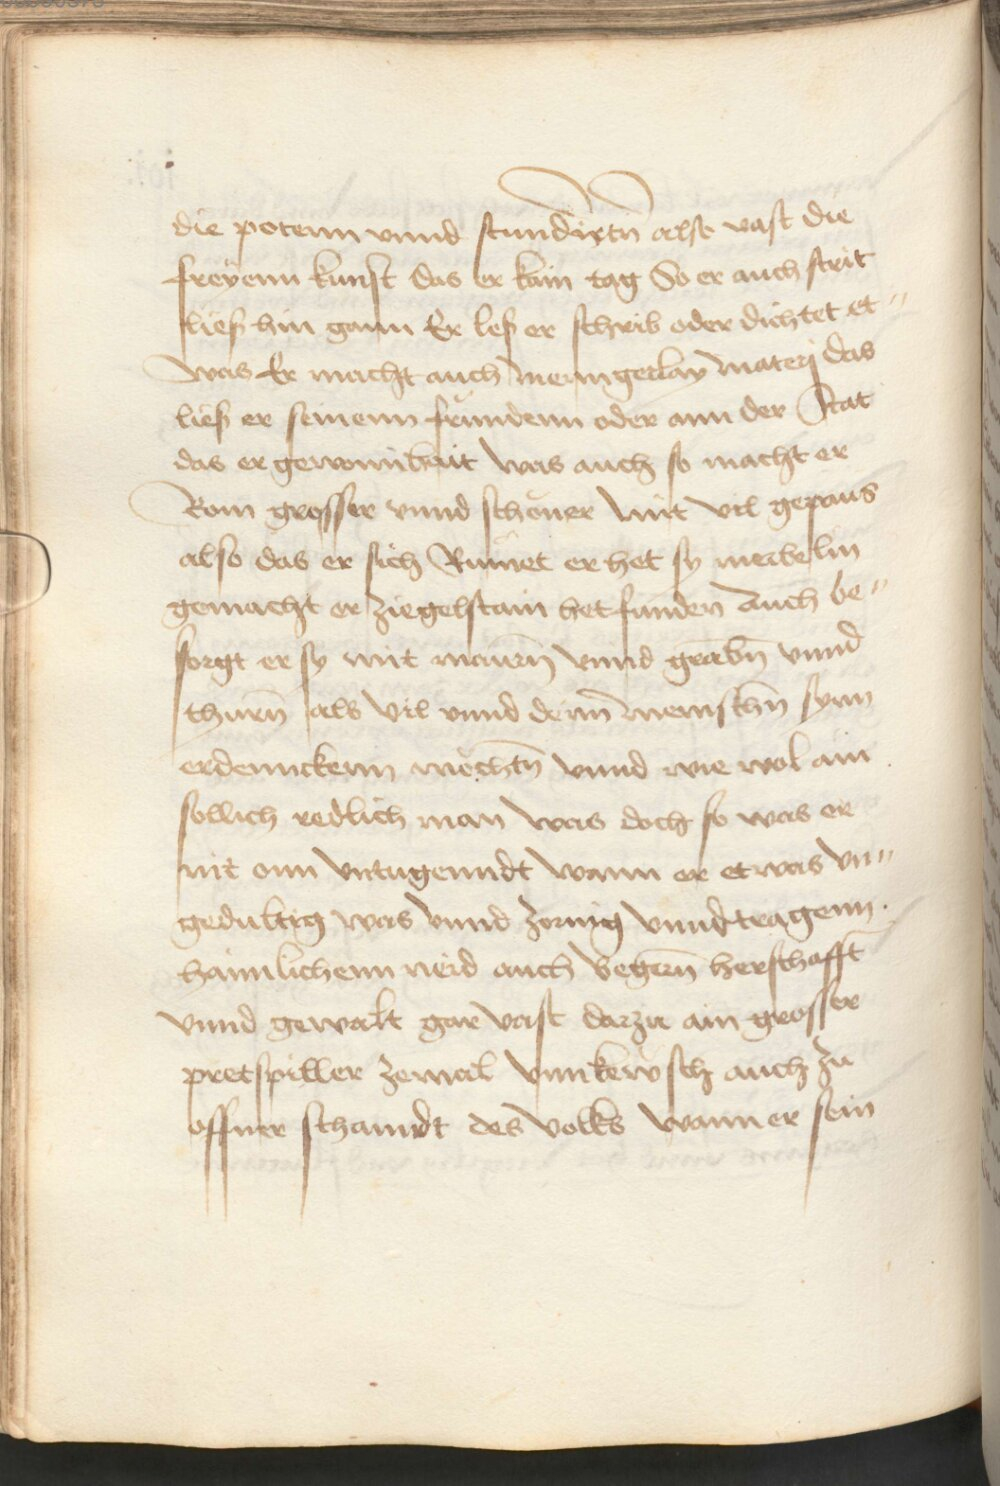 die potenn vnnd stundirtn also vast die
freyenn kunst das er kain tag So er auch strit
ließ hin gann Er leß er schrib oder dichtet et"
was Er macht auch mennigerlay Materj das
ließ er seinenn frundenn oder ann der Stat
das er gewonn was auch so macht er
Rom grosser vnnd schöner mit vil gepaus
also das er sich Rümet er het sy merbelin
gemacht er ziegelstain het funden Auch be"
sorgt er sy mit maurn vnnd grabn vnnd
thurn als vil vnnd denn mennschn synn
erdennckenn möchtn vnnd wie wol ain
sollich redlich man was doch so was er
nit onn vntugenndt wann er etwas vn"
gedultig was vnnd zornig vnnd tragenn
haimlichenn neid auch begern herschafft
vnnd gewalt gar vast darzu ain grosser
pretspiller zemal vnnkewsch auch zu
offner schanndt des volks wann er sein